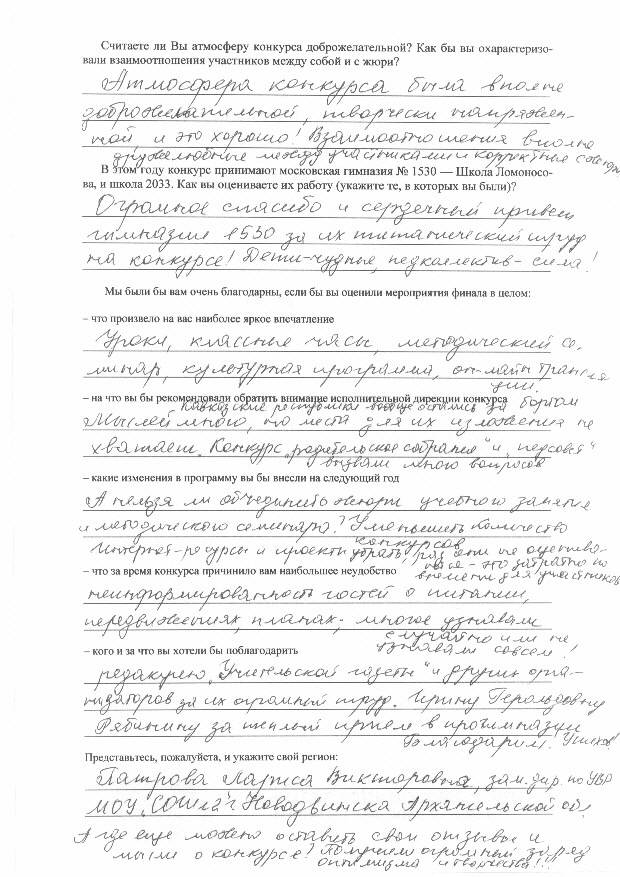 Считаете ли Вы атмосферу конкурса доброжелательной? Как бы вы охарактеризо-
вали взаимоотношения участников между собой и с жюри?
Атмосфера конкурса была вполне
доброжелательной, творчески напряжен-
ной и это хорошо! Взаимоотношения вполне
дружелюбные между участниками и корректные
В этом году конкурс принимают московская гимназия № 1530 — Школа Ломоносо-
ва, и школа 2033. Как вы оцениваете их работу (укажите те, в которых вы были)?
Огромное спасибо и сердечный привет
гимназии 1530 за их титанический труд
на конкурсе! Дети-чудные, педколлектив - сила!
Мы были бы вам очень благодарны, если бы вы оценили мероприятия финала в целом:
– что произвело на вас наиболее яркое впечатление
Уроки, классные часы, методический се-
минар, культурная программа, он-лайн трансля
ции.
– на что вы бы рекомендовали обратить внимание исполнительной дирекции конкурса
Кавказские республики вообще остались за бортом
Мыслей много, но места для их изложения не
хватает. Конкурс „родительское собрание" и „педсовет"
вызвали много вопросов
– какие изменения в программу вы бы внесли на следующий год
А нельзя ли объединить жюри учебного занятия
и методического семинара? Уменьшить количество
конкурсов
Интернет-ресурсы и проекты убрать, раз они не оценива-
лись - это затратно по
– что за время конкурса причинило вам наибольшее неудобство
времени для участников
неинформированность гостей о питании,
передвижениях, планах - многое узнавали
случайно или не
– кого и за что вы хотели бы поблагодарить
узнавали совсем!
редакцию „Учительской газеты" и других орга-
низаторов за их огромный труд. Ирину Герольдовну
Рябинину за теплый прием в прогимназии
Благодарим. Успехов!
Представьтесь, пожалуйста, и укажите свой регион:
Патрова Лариса Викторовна, зам. дир. по УВР
МОУ „СОШ г. Новодвинска Архангельской обл.
А где еще можно оставить свои отзывы и
мысли о конкурсе? Получили огромный заряд
оптимизма и творчества!!!